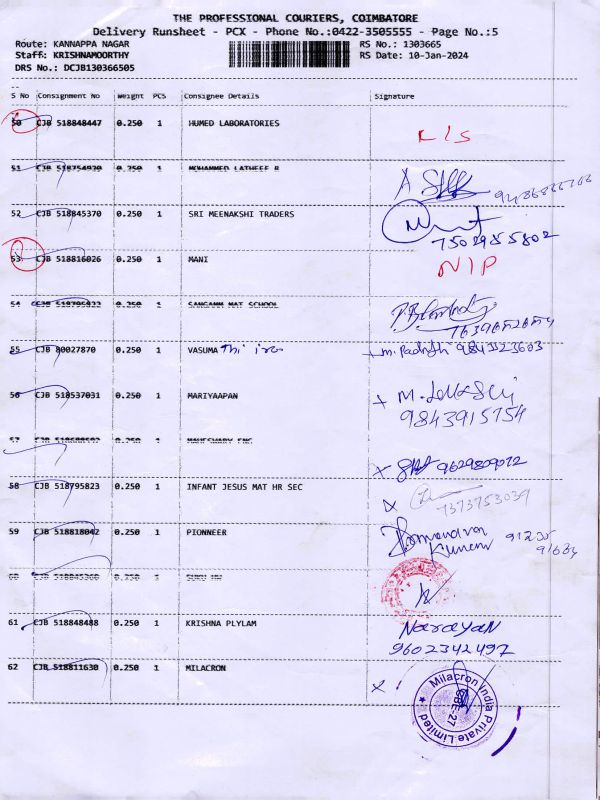 THE PROFESSIONAL COURIERS, COIMBATORE
Delivery Runsheet - PCX - Phone No.:0422-3505555 - Page No.:5
Route: KANNAPPA NAGAR RS No.: 1303665
Staff: KRISHNAMOORTHY RS Date: 10-Jan-2024
DRS No.: DCJB130366505
S No Consignment No Weight PCS Consignee Details Signature
50 CJB 518848447 0.250 1 HUMED LABORATORIES
L/S
51 CJB 518754920 0.250 1 MOHAMMED LATHEEF B
A
52 CJB 518845370 0.250 1 SRI MEENAKSHI TRADERS
7502955802
53 CJB 518816026 0.250 1 MANI
N/P
54 CJB 518795822 0.250 1 SANGAMM MAT SCHOOL
55 CJB 80027870 0.250 1 VASUMA
9843323603
56 CJB 518537031 0.250 1 MARIYAAPAN
9843915754
57 0.250 1 MAHESWARY ENG
9629809072
58 CJB 518795823 0.250 1 INFANT JESUS MAT HR SEC
7373753039
59 CJB 518818042 0.250 1 PIONNEER
60 0.250 1
61 CJB 518848488 0.250 1 KRISHNA PLYLAM
Narayan
9602342497
62 CJB 518811630 0.250 1 MILACRON
Milacron India Private Limited
CBE-27